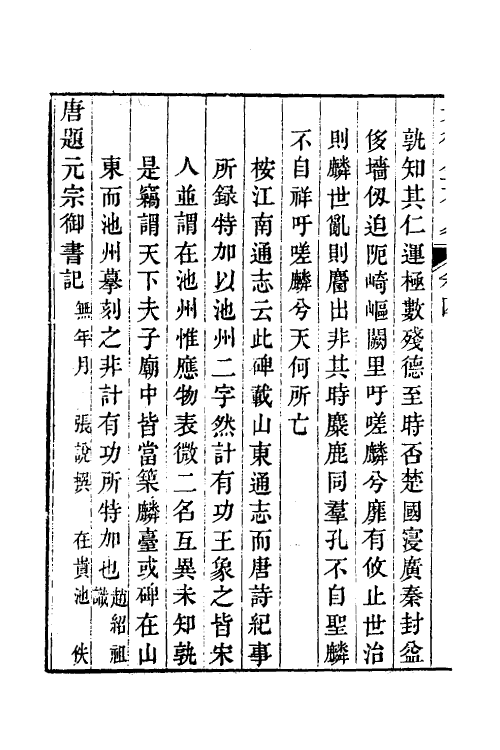 孰知其仁運極數殘德至時否楚國寖廣秦封益
侈墻仭迫阨崎嶇闕里吁嗟麟兮靡有攸止世治
則麟世亂則麕出非其時麋鹿同羣孔不自聖麟
不自祥吁嗟麟兮天何所亡
桉江南通志云此碑載山東通志而唐詩紀事
所録特加以池州二字然計有功王象之皆宋
人並謂在池州惟應物表微二名互異未知孰
是竊謂天下夫子廟中皆當築麟臺或碑在山
東而池州摹刻之非計有功所特加也趙紹祖識
唐題元宗御書記 無年月 張說撰 在貴池 佚